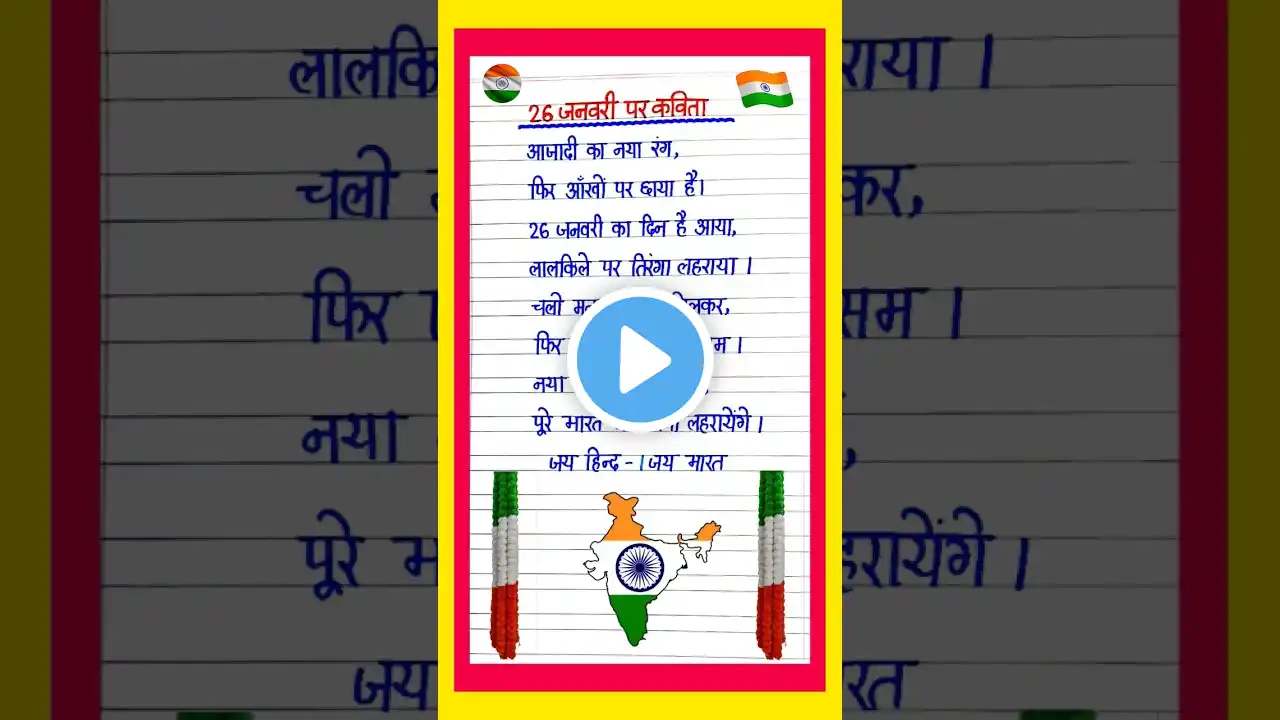 26 जनवरी पर कविता
आजादी का नया रंग,
फिर आँखों पर छाया है।
26 जनवरी का दिन है आया,
लालकिले पर तिरंगा लहराया ।
चलो
फिर
नया
पूरे भारत लहरायेंगे ।
जय हिन्द - । जय भारत